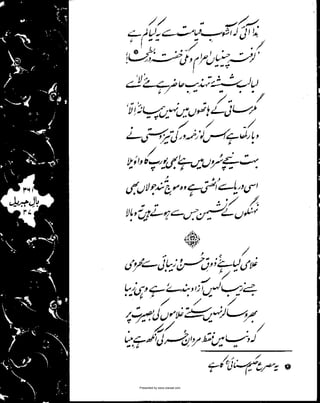 ندا آئی کہ آشوبِ قیامت سے یہ کیا کم ہے
گرفتہ چینیاں احرام و مکی خفتہ در بطحا
لبالب شیشۂ تہذیبِ حاضر ہے مے لا سے
مگر ساقی کے ہاتھوں میں نہیں پیمانۂ اِلّا
دبا رکھا ہے اس کو زخمہ ور کی تیز دستی نے
بہت نیچے سروں میں ہے ابھی یورپ کا واویلا
اسی دریا سے اٹھتی ہے وہ موجِ تند جولاں بھی
نہنگوں کے نشیمن جس سے ہوتے ہیں تہ و بالا
غلامی کیا ہے؟ ذوقِ حسن و زیبائی سے محرومی
جسے زیبا کہیں آزاد بندے، ہے وہی زیبا
بھروسا کر نہیں سکتے غلاموں کی بصیرت پر
کہ دنیا میں فقط مردانِ حر کی آنکھ ہے بینا
یہ مصرع حکیم سنائی کا ہے
۳۶۱
بالِ جبریل
۳۷
Presented by www.ziaraat.com